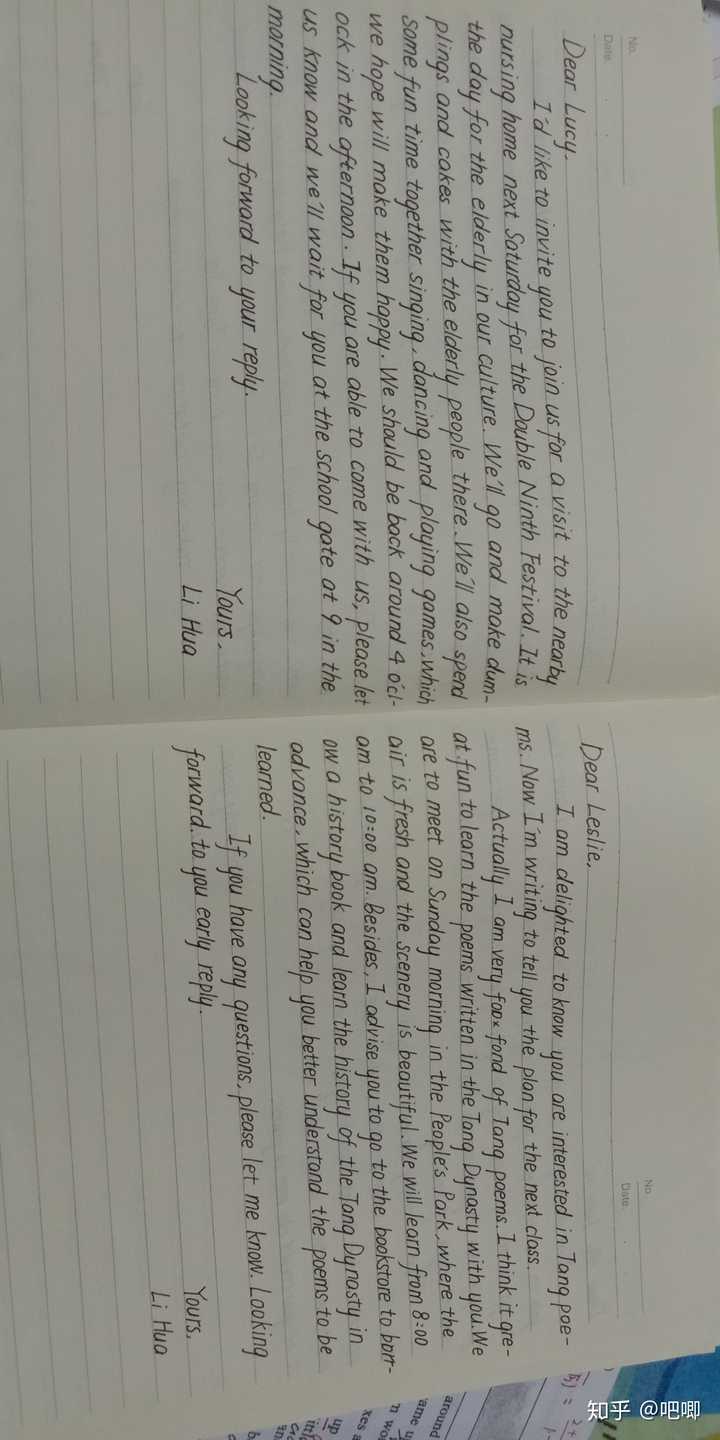 No.
Date
Dear Lucy,
I'd like to invite you to join us for a visit to the nearby
nursing home next Saturday for the Double Ninth Festival. It is
the day for the elderly in our culture. We'll go and make dum-
plings and cakes with the elderly people there. We'll also spend
some fun time together singing, dancing and playing games, which
we hope will make them happy. We should be back around 4 o'cl-
ock in the afternoon. If you are able to come with us, please let
us know and we'll wait for you at the school gate at 9 in the
morning.
Looking forward to your reply.
Yours,
Li Hua
No.
Date
Dear Leslie,
I am delighted to know you are interested in Tang poe-
ms. Now I'm writing to tell you the plan for the next class.
Actually I am very fond of Tang poems. I think it gre-
at fun to learn the poems written in the Tang Dynasty with you. We
are to meet on Sunday morning in the People's Park, where the
air is fresh and the scenery is beautiful. We will learn from 8:00
am to 10:00 am. Besides, I advise you to go to the bookstore to borr-
ow a history book and learn the history of the Tang Dynasty in
advance, which can help you better understand the poems to be
learned.
If you have any questions, please let me know. Looking
forward to you early reply.
Yours,
Li Hua
around
xes
up
知乎 @吧唧